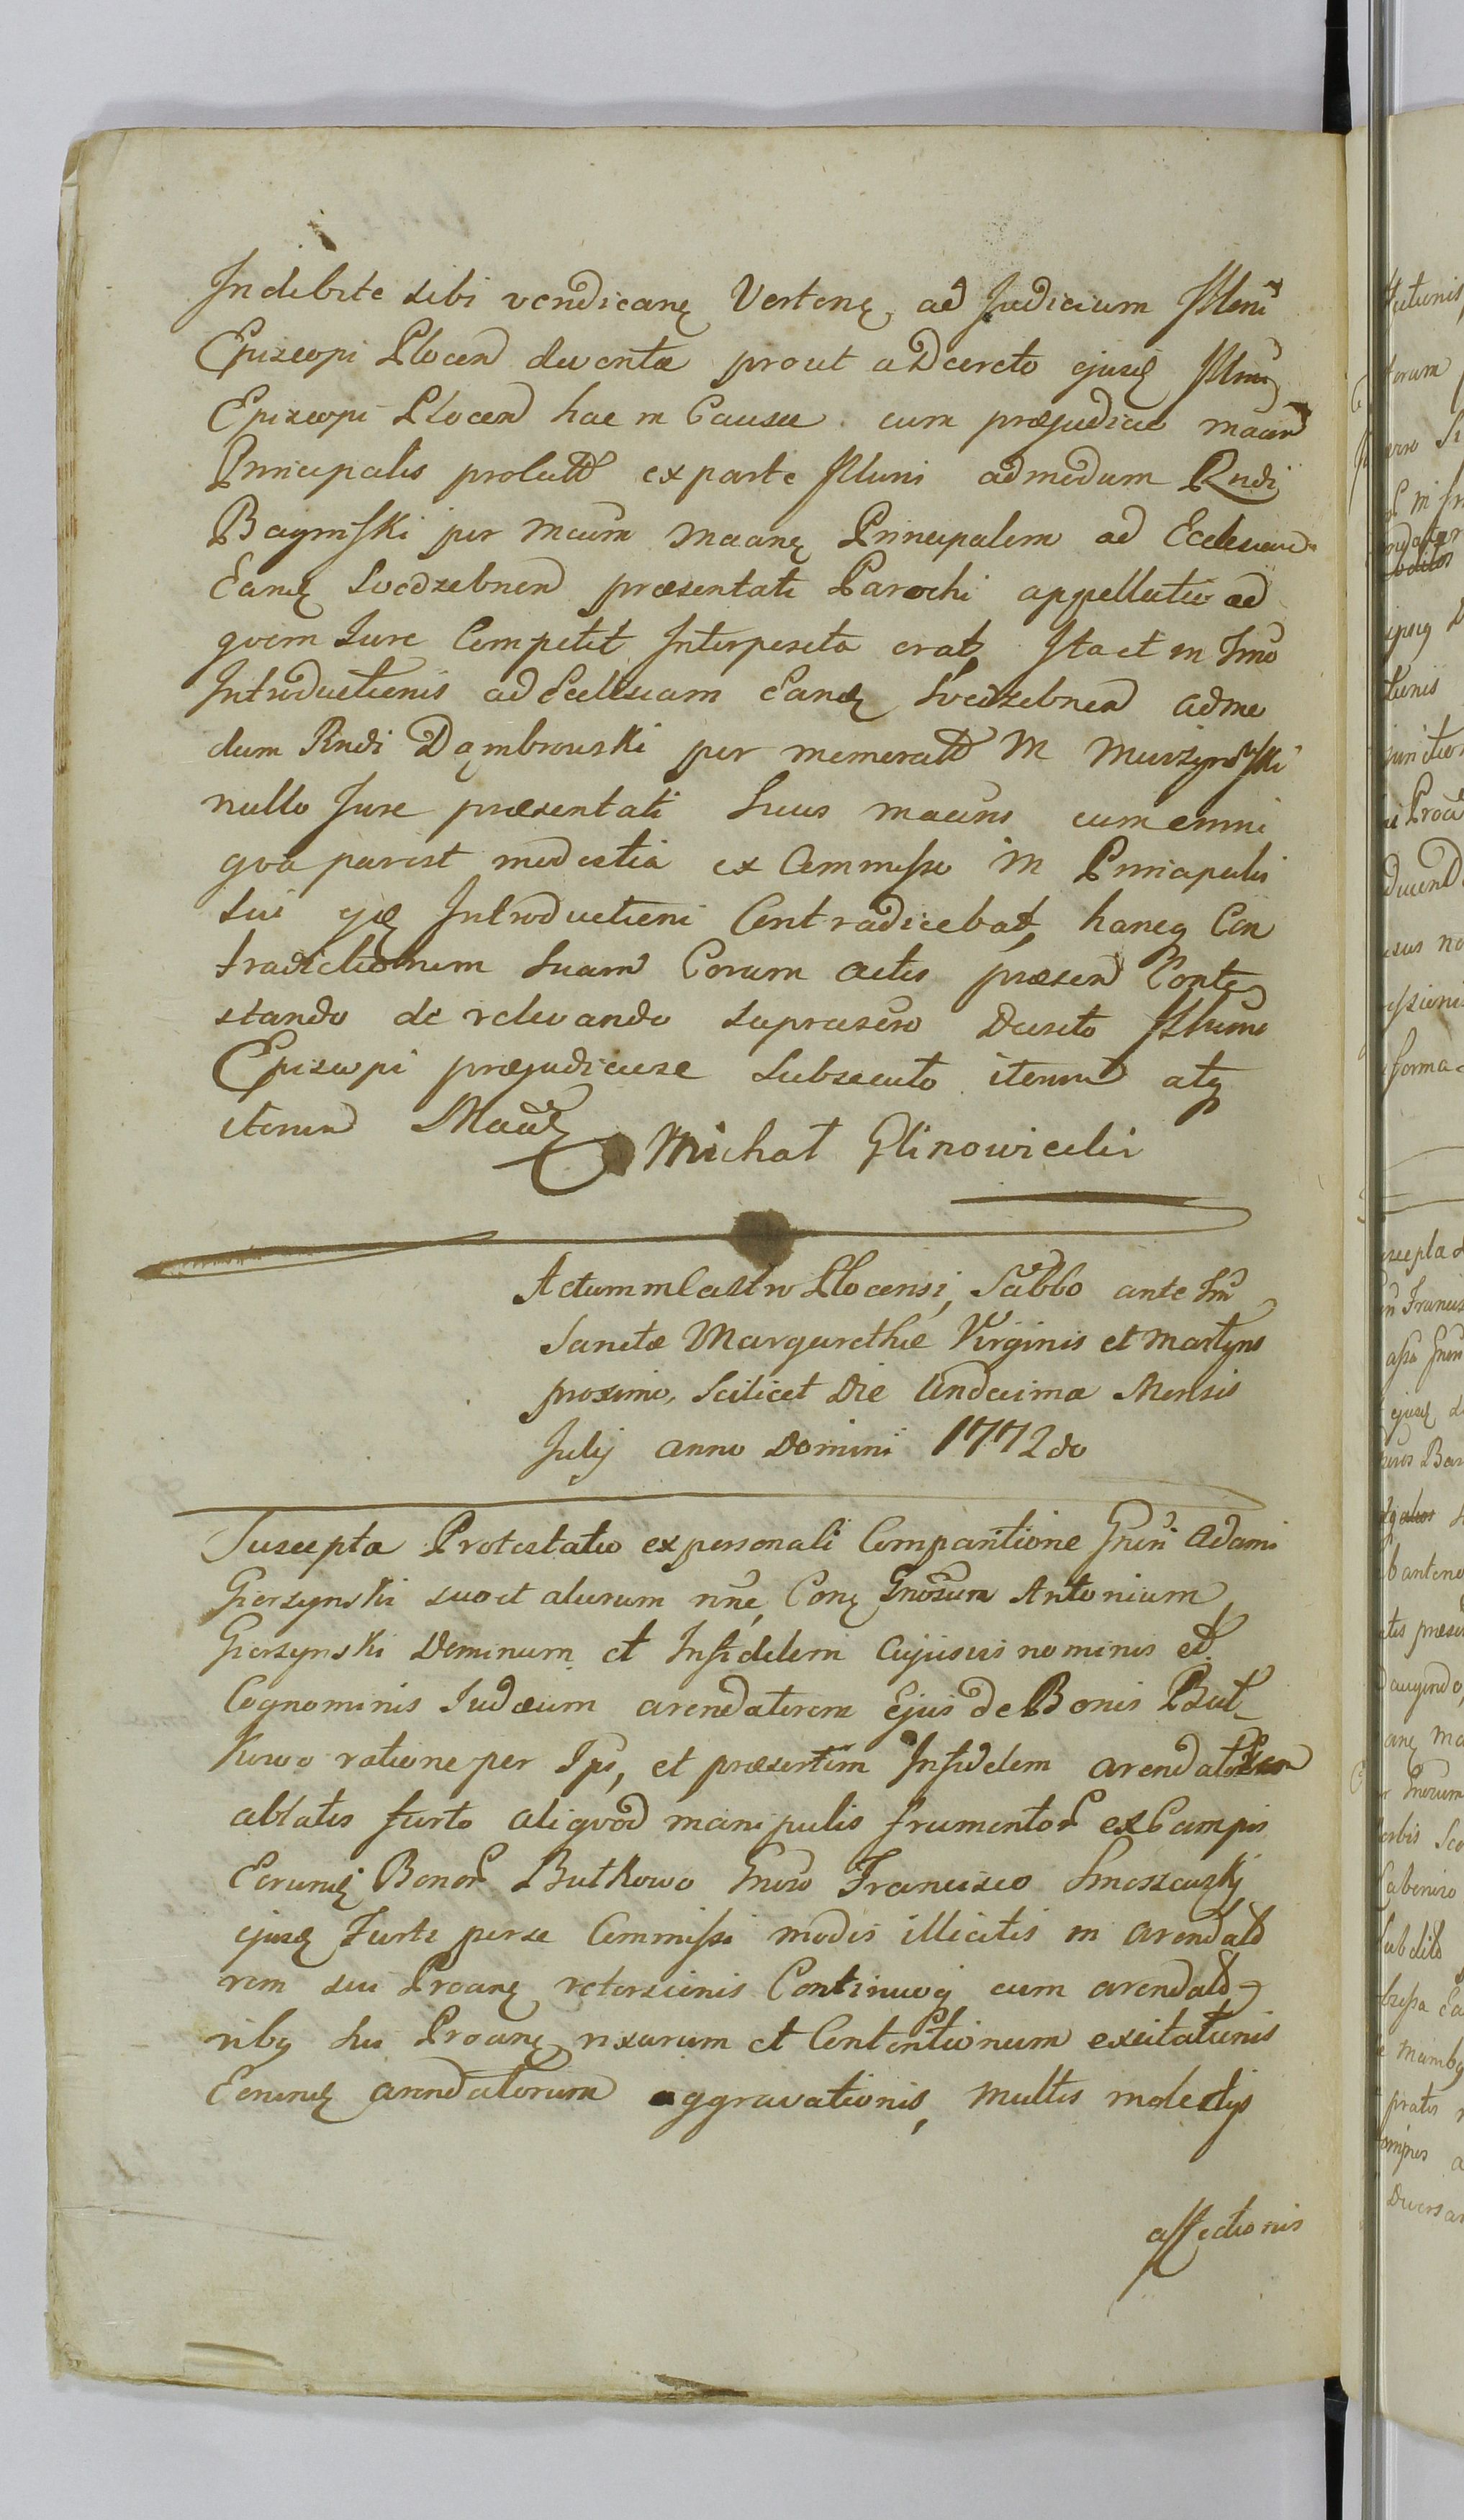 Indebite sibi vendicanę Vertenę, ad Judicium Illmi
Episcopi Plocen devoluta prout a Decreto ejusd Illmi
Episcopi Plocen hac in Causa cum præjudicio macn
Principalis prolato ex parte Illmi admodum Rndi
Baginski per macn Principalem ad Ecclesiam
Eand Srebrzebnen præsentati Parochi appellatio ad
quem Jure Competit Interposita erat, Ita et in Tmo
Introductionis ad Ecclesiam Eand admo
dum Rndi Dąmbrowski per memorat M Murzynowski
nullo Jure præsentati Suus macns cum omni
qva par est modestia ex Commisso M Principalis
Sui Introductioni Contradicebat, hancq Con
tradictionem Suam Coram actis præsen Conte
stando de relevando suprascro Decreto Illmi
Episcopi præjudiciose Subsecuto iterum atq
iterum
Michał Glinowiecki
Actum in Castro Plocensi, Sabbo ante Fm
Sanctæ Margarethæ Virginis et Martyris
proximo, Scilicet Die Undecima Mensis
Julij anno Domini 1772do
Suscepta Protestatio ex personali Comparitione Gnsi Adami
Gierzynski suo et aliorum nne, Conę Gnosum Antonium
Gierzynski Dominum et Infidelem Cujusvis nominis et
Cognominis Judæum arendatorem Ejus de Bonis But
kowo ratione per Ips, et præsertim Infidelem arendatorem
ablatis furto aliqvod manipulis frumentor ex Campis
Eorumd Bonor Butkowo Gnoso Francisco Smoszewski
ejusd Furti per se Commissi modis illicitis in arendato
rem sui Proanę retorsionis Continuoq cum arendato
ribq sui Proanę rixarum et Contentionum excitationis
Eorumd arendatorum aggravationis, multis molestijs
affectionis